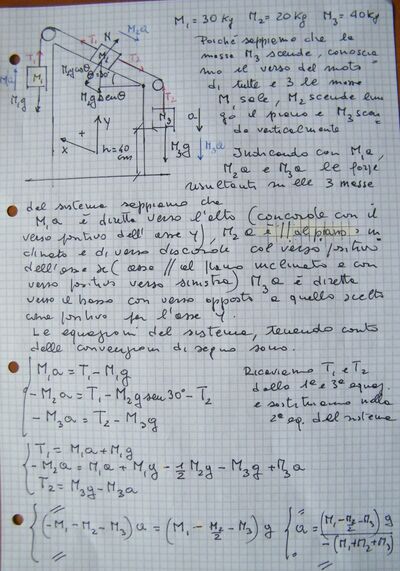 M₁ = 30 kg M₂ = 20 kg M₃ = 40 kg
Poiché sappiamo che la
massa M₃ scende, conoscia
mo il verso del moto
di tutte e 3 le masse
M₁ sale, M₂ scende lun
go il piano e M₃ scen
de verticalmente
Indicando con M₁a,
M₂a e M₃a le forze
risultanti sulle 3 masse
N M₂a
T₁ T₁
M₁a M₁
M₁g
M₂g cosθ θ=30°
M₂g senθ
T₂ T₂
M₃ a
M₃g M₃a
+ Y
x h=60 cm
del sistema sappiamo che
M₁a è diretta verso l'alto (concorde con il
verso positivo dell'asse Y), M₂a è // al piano in
clinato e di verso discorde col verso positivo
dell'asse x (asse // al piano inclinato e con
verso positivo verso sinistra) M₃a è diretta
verso il basso con verso opposto a quello scelto
come positivo per l'asse Y.
Le equazioni del sistema, tenendo conto
delle convenzioni di segno sono.
M₁a = T₁ - M₁g
-M₂a = T₁ - M₂g sen30° - T₂
-M₃a = T₂ - M₃g
Ricaviamo T₁ e T₂
dalla 1ª e 3ª equaz.
e sostituiamo nella
2ª eq. del sistema
T₁ = M₁a + M₁g
-M₂a = M₁a + M₁g - 1/2 M₂g - M₃g + M₃a
T₂ = M₃g - M₃a
(-M₁ - M₂ - M₃) a = (M₁ - M₂/2 - M₃) g a = (M₁ - M₂/2 - M₃) g / -(M₁ + M₂ + M₃)